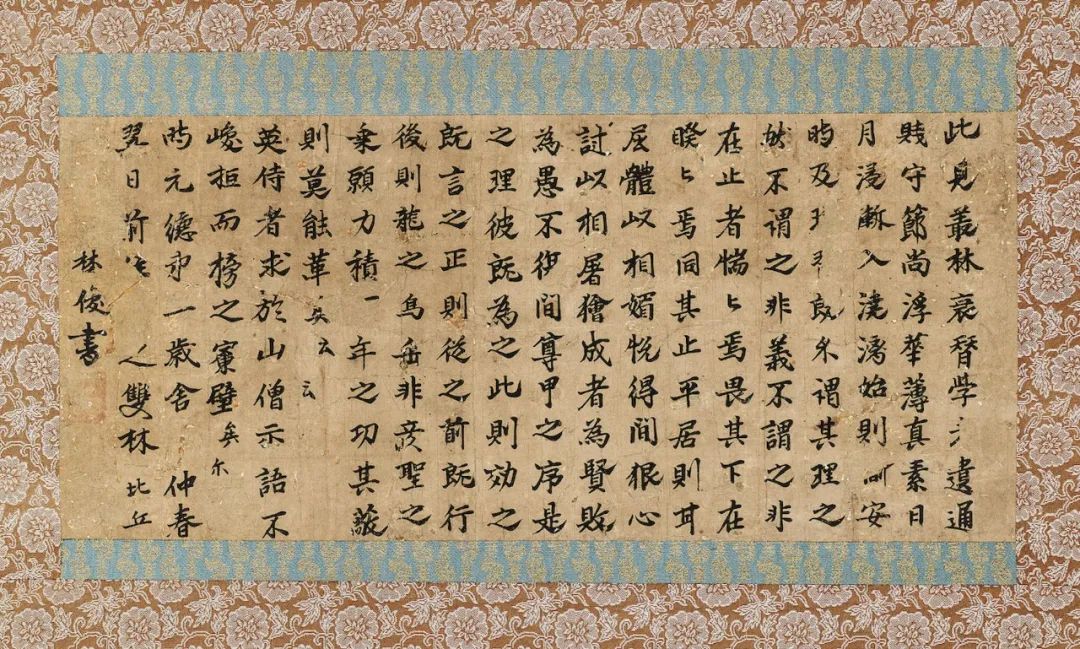 此見叢林衰替學遺通
賤守節尚浮華薄真素日
月浸漸入澆漓始則安
時及既久謂其理之
然不謂之非義不謂之非
在止者惴〻焉畏其下在
睽〻焉伺其止平居則甘
屈體以相媚悅得間狠心
討以相屠獪成者為賢敗
為愚不復間尊卑之序是
之理彼既為之此則効之
既言之正則從之前既行
後則襲之烏乎非彦聖之
乗願力積年之功其蔽
則莫能革矣云云
英侍者求於山僧示語不
峻拒而榜之窠壁矣尓
時元德一歲舍仲春
翌日前人雙林比丘
林俊書